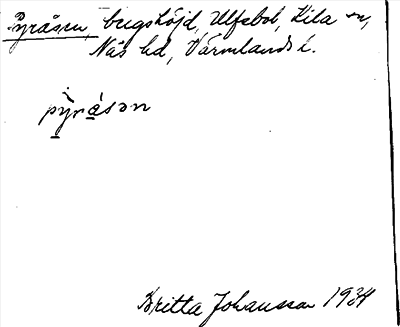 Pyråsen, bergshöjd, Ulfsbol, Kila sn,
Näs hd, Värmlands l.
pỳrásən
Britta Johansson 1934